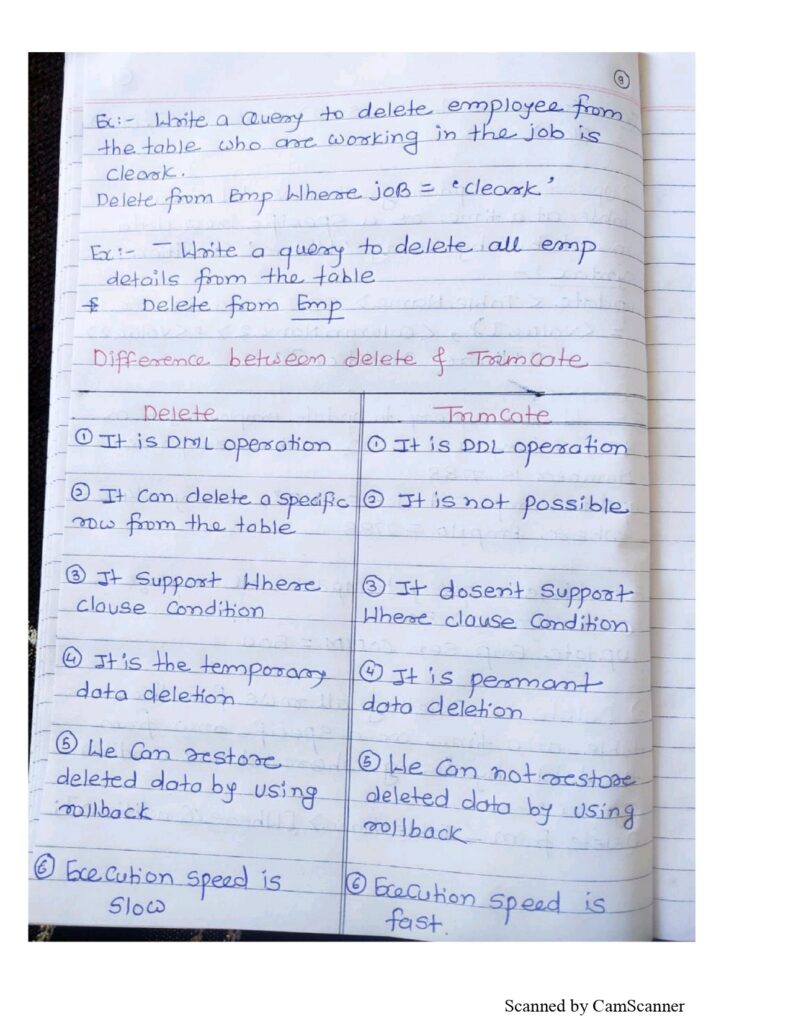 9
Ex:- Write a Query to delete employee from
the table who are working in the job is
cleark.
Delete from Emp Where joB = 'cleark'
Ex:- - Write a query to delete all emp
details from the table
Delete from Emp
Difference between delete & Truncate
Delete
① It is DML operation
② It can delete a specific
row from the table
③ It Support Where
clause Condition
④ It is the temporary
data deletion
⑤ We Can restore
deleted data by using
rollback
⑥ Execution speed is
slow
Truncate
① It is DDL operation
② It is not possible
③ It dosen't Support
Where clause Condition
④ It is permant
data deletion
⑤ We Can not restore
deleted data by using
rollback
⑥ Execution speed is
fast.
Scanned by CamScanner